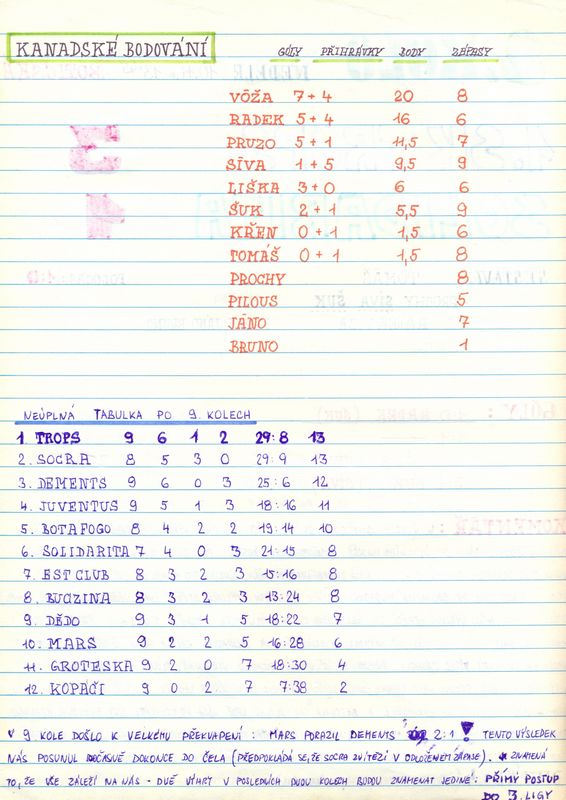 KANADSKÉ BODOVÁNÍ GÓLY PŘIHRÁVKY BODY ZÁPASY
VÓŽA 7+4 20 8
RADEK 5+4 16 6
PRUZO 5+1 11,5 7
SÍVA 1+5 9,5 9
LIŠKA 3+0 6 6
ŠUK 2+1 5,5 9
KŘEN 0+1 1,5 6
TOMÁŠ 0+1 1,5 8
PROCHY 8
PILOUS 5
JÁNO 7
BRUNO 1
NEÚPLNÁ TABULKA PO 9. KOLECH
1. TROPS 9 6 1 2 29:8 13
2. SOCRA 8 5 3 0 29:9 13
3. DEMENTS 9 6 0 3 25:6 12
4. JUVENTUS 9 5 1 3 18:16 11
5. BOTAFOGO 8 4 2 2 19:14 10
6. SOLIDARITA 7 4 0 3 21:15 8
7. EST CLUB 8 3 2 3 15:16 8
8. BUCZINA 8 3 2 3 13:24 8
9. DĚDO 9 3 1 5 18:22 7
10. MARS 9 2 2 5 16:28 6
11. GROTESKA 9 2 0 7 18:30 4
12. KOPÁČI 9 0 2 7 7:38 2
V 9 KOLE DOŠLO K VELKÉMU PŘEKVAPENÍ: MARS PORAZIL DEMENTS 2:1! TENTO VÝSLEDEK
NÁS POSUNUL DOČASNĚ DOKONCE DO ČELA (PŘEDPOKLÁDÁ SE, ŽE SOCRA ZVÍTĚZÍ V ODLOŽENÉM ZÁPASE). ZNAMENÁ
TO, ŽE VŠE ZÁLEŽÍ NA NÁS - DVĚ VÝHRY V POSLEDNÍCH DVOU KOLECH BUDOU ZNAMENAT JEDINÉ: PŘÍMÝ POSTUP
DO 3. LIGY